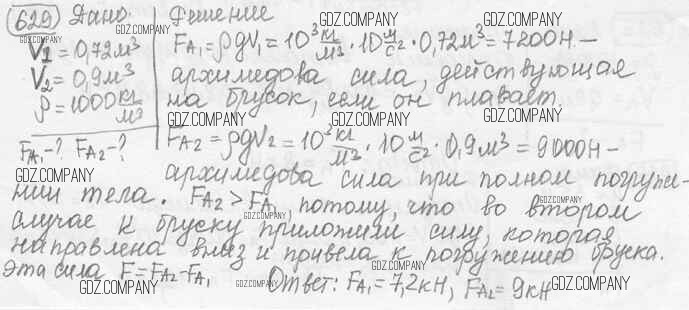 629 Дано: Решение
V1 = 0,72 м³ FA1 = ρgV1 = 10³ кг/м³ · 10 м/с² · 0,72 м³ = 7200 Н —
V2 = 0,9 м³ архимедова сила, действующая
ρ = 1000 кг/м³ на брусок, если он плавает.
FA1 - ? FA2 - ? FA2 = ρgV2 = 10³ кг/м³ · 10 м/с² · 0,9 м³ = 9000 Н —
архимедова сила при полном погруже-
нии тела. FA2 > FA1, потому, что во втором
случае к бруску приложили силу, которая
направлена вниз и привела к погружению бруска.
Эта сила F = FA2 - FA1 Ответ: FA1 = 7,2 кН, FA2 = 9 кН
GDZ.COMPANY
GDZ.COMPANY
GDZ.COMPANY
GDZ.COMPANY
GDZ.COMPANY
GDZ.COMPANY
GDZ.COMPANY
GDZ.COMPANY
GDZ.COMPANY
GDZ.COMPANY
GDZ.COMPANY
GDZ.COMPANY
GDZ.COMPANY
GDZ.COMPANY